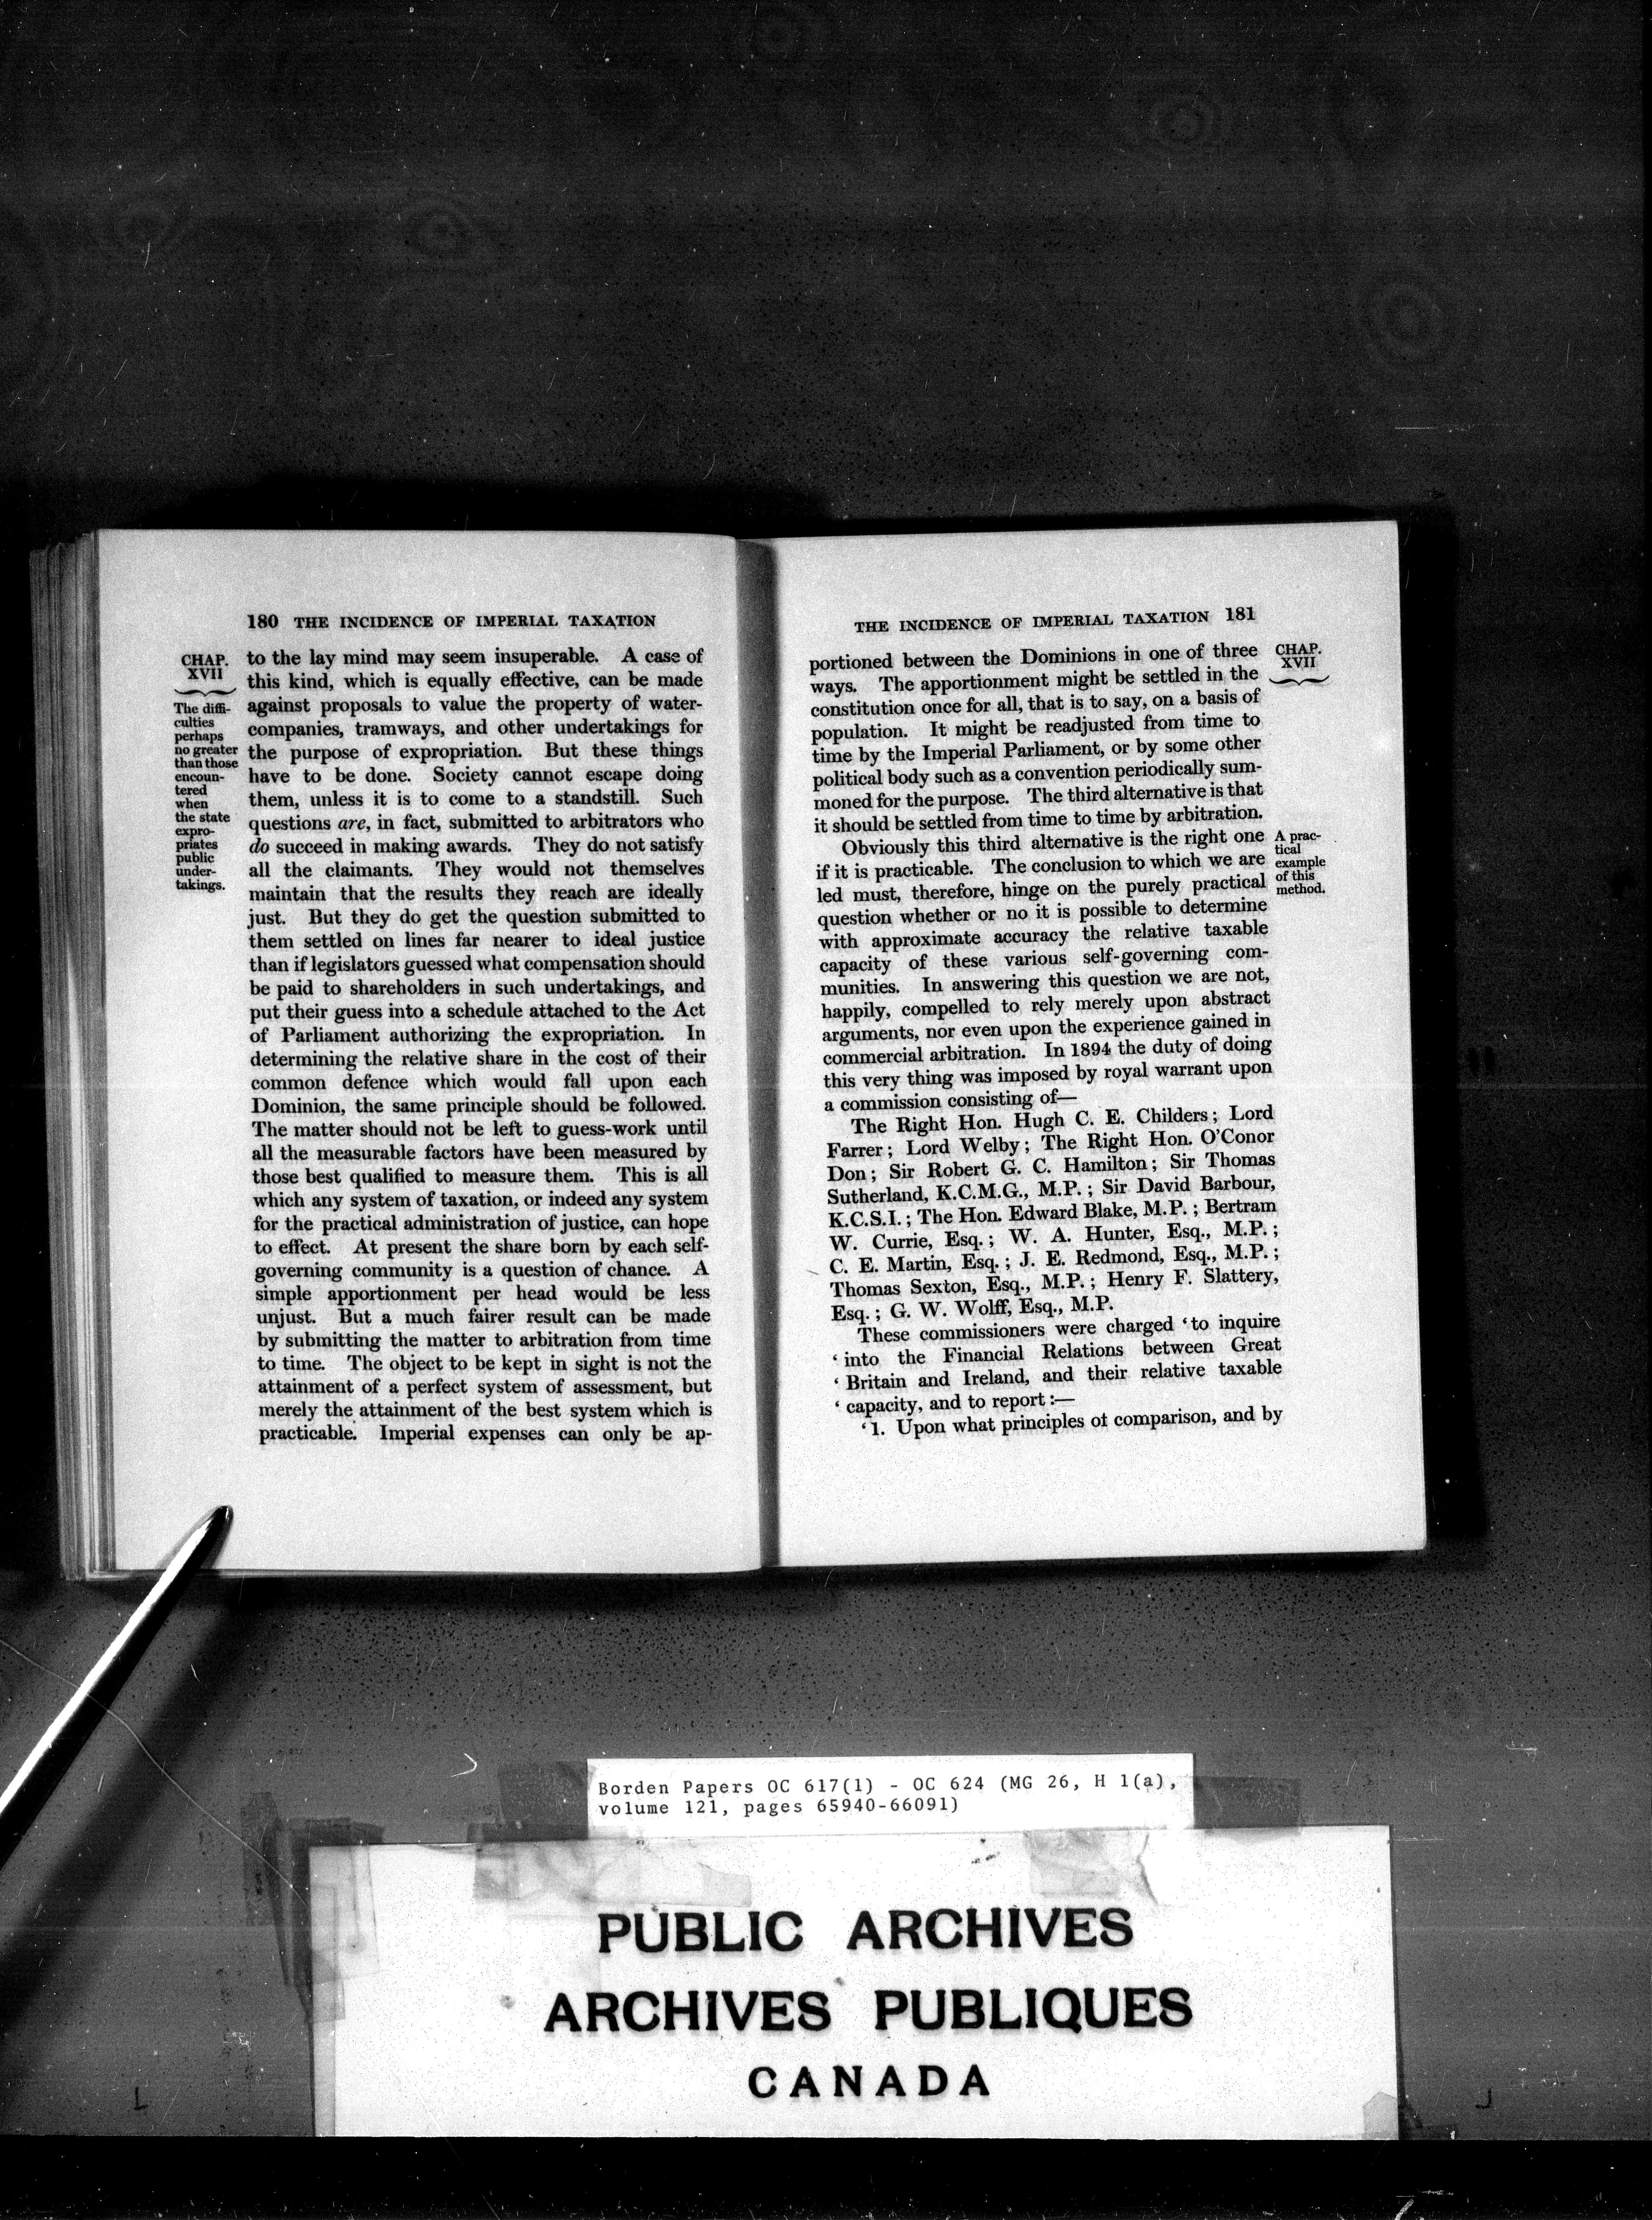 180 THE INCIDENCE OF IMPERIAL TAXATION
CHAP.
XVII
The diffi-
culties
perhaps
no greater
than those
encoun-
tered
when
the state
expro-
priates
public
under-
takings.
to the lay mind may seem insuperable. A case of
this kind, which is equally effective, can be made
against proposals to value the property of water-
companies, tramways, and other undertakings for
the purpose of expropriation. But these things
have to be done. Society cannot escape doing
them, unless it is to come to a standstill. Such
questions are, in fact, submitted to arbitrators who
do succeed in making awards. They do not satisfy
all the claimants. They would not themselves
maintain that the results they reach are ideally
just. But they do get the question submitted to
them settled on lines far nearer to ideal justice
than if legislators guessed what compensation should
be paid to shareholders in such undertakings, and
put their guess into a schedule attached to the Act
of Parliament authorizing the expropriation. In
determining the relative share in the cost of their
common defence which would fall upon each
Dominion, the same principle should be followed.
The matter should not be left to guess-work until
all the measurable factors have been measured by
those best qualified to measure them. This is all
which any system of taxation, or indeed any system
for the practical administration of justice, can hope
to effect. At present the share born by each self-
governing community is a question of chance. A
simple apportionment per head would be less
unjust. But a much fairer result can be made
by submitting the matter to arbitration from time
to time. The object to be kept in sight is not the
attainment of a perfect system of assessment, but
merely the attainment of the best system which is
practicable. Imperial expenses can only be ap-
THE INCIDENCE OF IMPERIAL TAXATION 181
portioned between the Dominions in one of three
ways. The apportionment might be settled in the
constitution once for all, that is to say, on a basis of
population. It might be readjusted from time to
time by the Imperial Parliament, or by some other
political body such as a convention periodically sum-
moned for the purpose. The third alternative is that
it should be settled from time to time by arbitration.
Obviously this third alternative is the right one
if it is practicable. The conclusion to which we are
led must, therefore, hinge on the purely practical
question whether or no it is possible to determine
with approximate accuracy the relative taxable
capacity of these various self-governing com-
munities. In answering this question we are not,
happily, compelled to rely merely upon abstract
arguments, nor even upon the experience gained in
commercial arbitration. In 1894 the duty of doing
this very thing was imposed by royal warrant upon
a commission consisting of—
The Right Hon. Hugh C. E. Childers; Lord
Farrer; Lord Welby; The Right Hon. O'Conor
Don; Sir Robert G. C. Hamilton; Sir Thomas
Sutherland, K.C.M.G., M.P.; Sir David Barbour,
K.C.S.I.; The Hon. Edward Blake, M.P.; Bertram
W. Currie, Esq.; W. A. Hunter, Esq., M.P.;
C. E. Martin, Esq.; J. E. Redmond, Esq., M.P.;
Thomas Sexton, Esq., M.P.; Henry F. Slattery,
Esq.; G. W. Wolff, Esq., M.P.
These commissioners were charged 'to inquire
'into the Financial Relations between Great
'Britain and Ireland, and their relative taxable
'capacity, and to report:—
'1. Upon what principles of comparison, and by
CHAP.
XVII
A prac-
tical
example
of this
method.
Borden Papers OC 617(1) - OC 624 (MG 26, H 1(a),
volume 121, pages 65940-66091)
PUBLIC ARCHIVES
ARCHIVES PUBLIQUES
CANADA